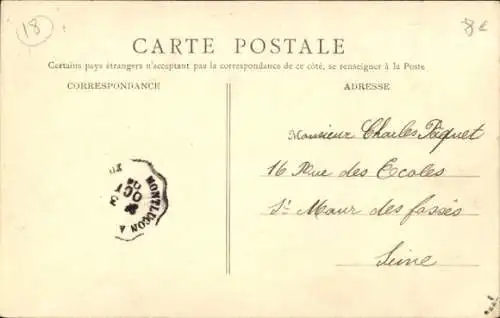 18
8€
CARTE POSTALE
Certains pays étrangers n'acceptant pas la correspondance de ce côté, se renseigner à la Poste
CORRESPONDANCE
ADRESSE
Monsieur Charles Paquet
16 Rue des Ecoles
St Maur des fossés
Seine
MONTLUCON A
3
OCT